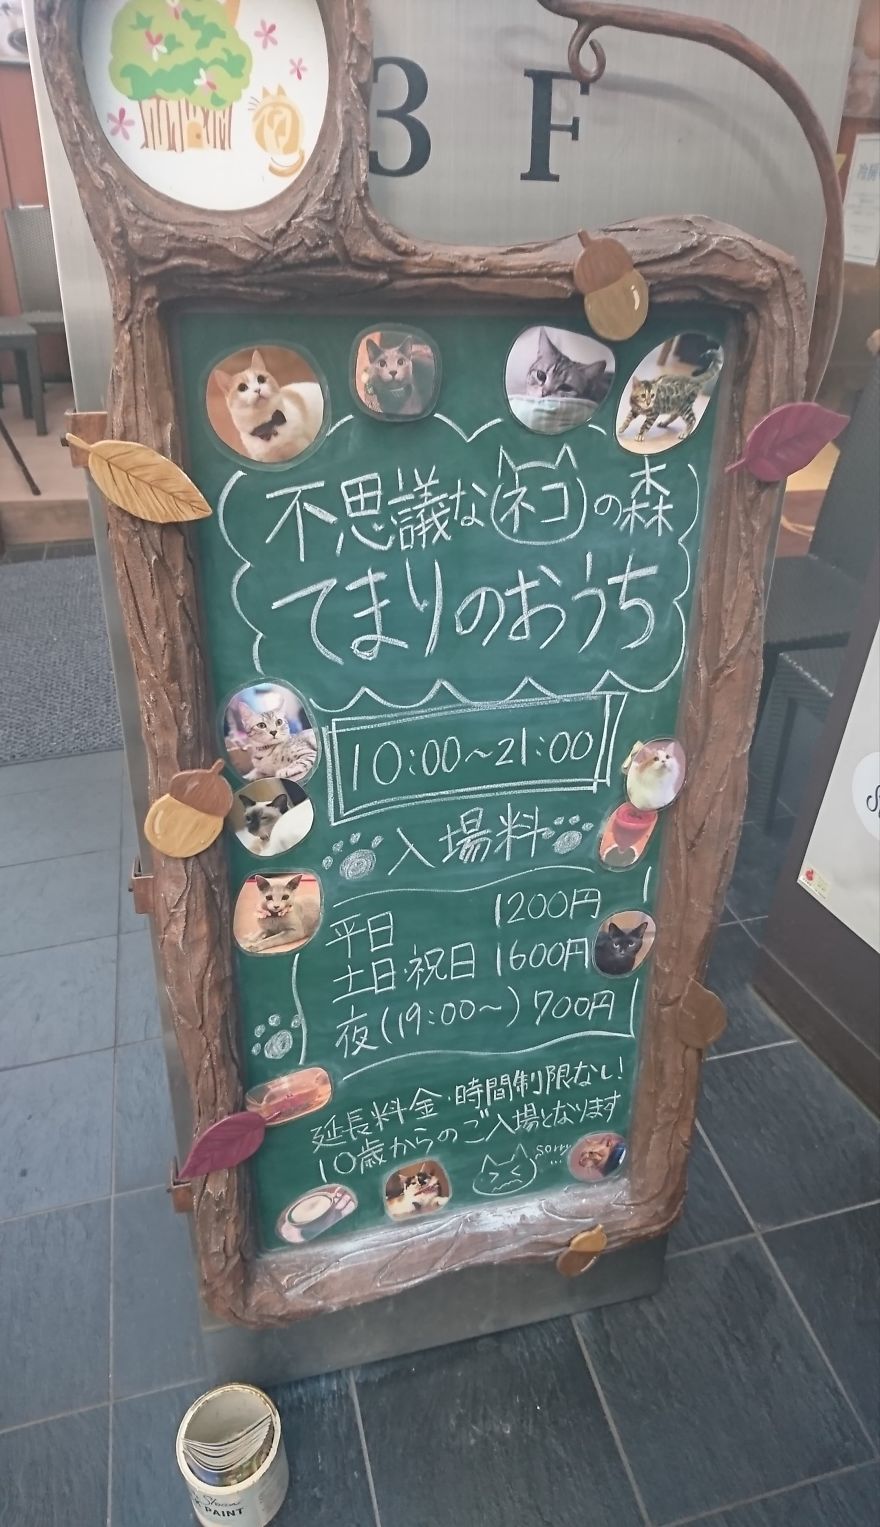 3 F
不思議なネコの森
てまりのおうち
10:00～21:00
入場料
平日 1200円
土日・祝日 1600円
夜(19:00～) 700円
延長料金・時間制限ない!
10歳からのご入場となります
sorry...
PAINT